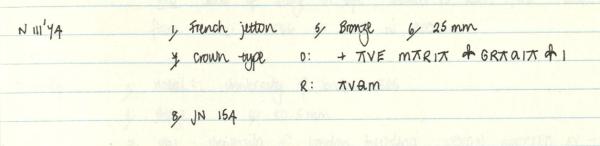 N III'Y4 1, French jetton 5, Bronze 6, 25 mm
7, crown type O: + ΛVE MΛRIΛ & GRΛCIΛ & I
R: ΛVQM
8, JN 154